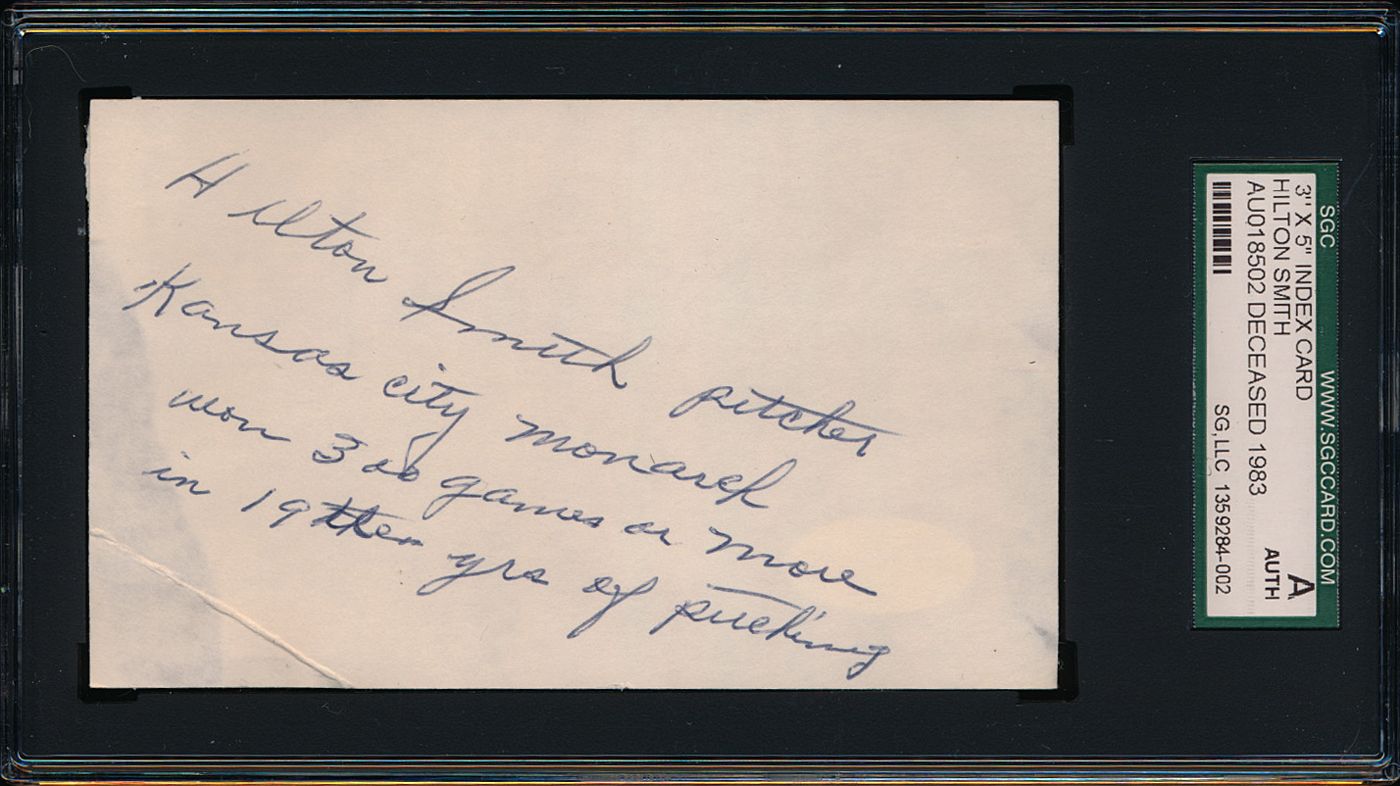 Hilton Smith pitcher
Kansas city monarch
won 300 games or more
in 19 yrs of pitching
SGC WWW.SGCCARD.COM
3" X 5" INDEX CARD
HILTON SMITH
AU018502 DECEASED 1983
A
AUTH
SG, LLC 1359284-002